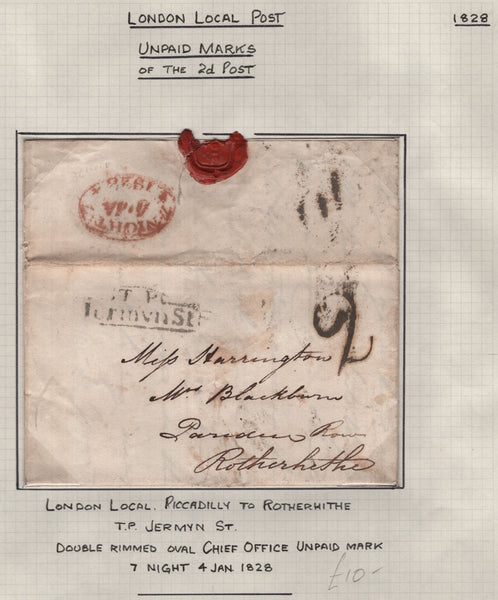 LONDON LOCAL POST
1828
UNPAID MARKS
OF THE 2d POST
7 NIGHT 7
4 JA
1828
T.P
Jermyn St
2
Miss Harrington
Mrs Blackburn
Row
Rotherhithe
LONDON LOCAL. PICCADILLY TO ROTHERHITHE
T.P. JERMYN ST.
DOUBLE RIMMED OVAL CHIEF OFFICE UNPAID MARK
7 NIGHT 4 JAN 1828
£10-